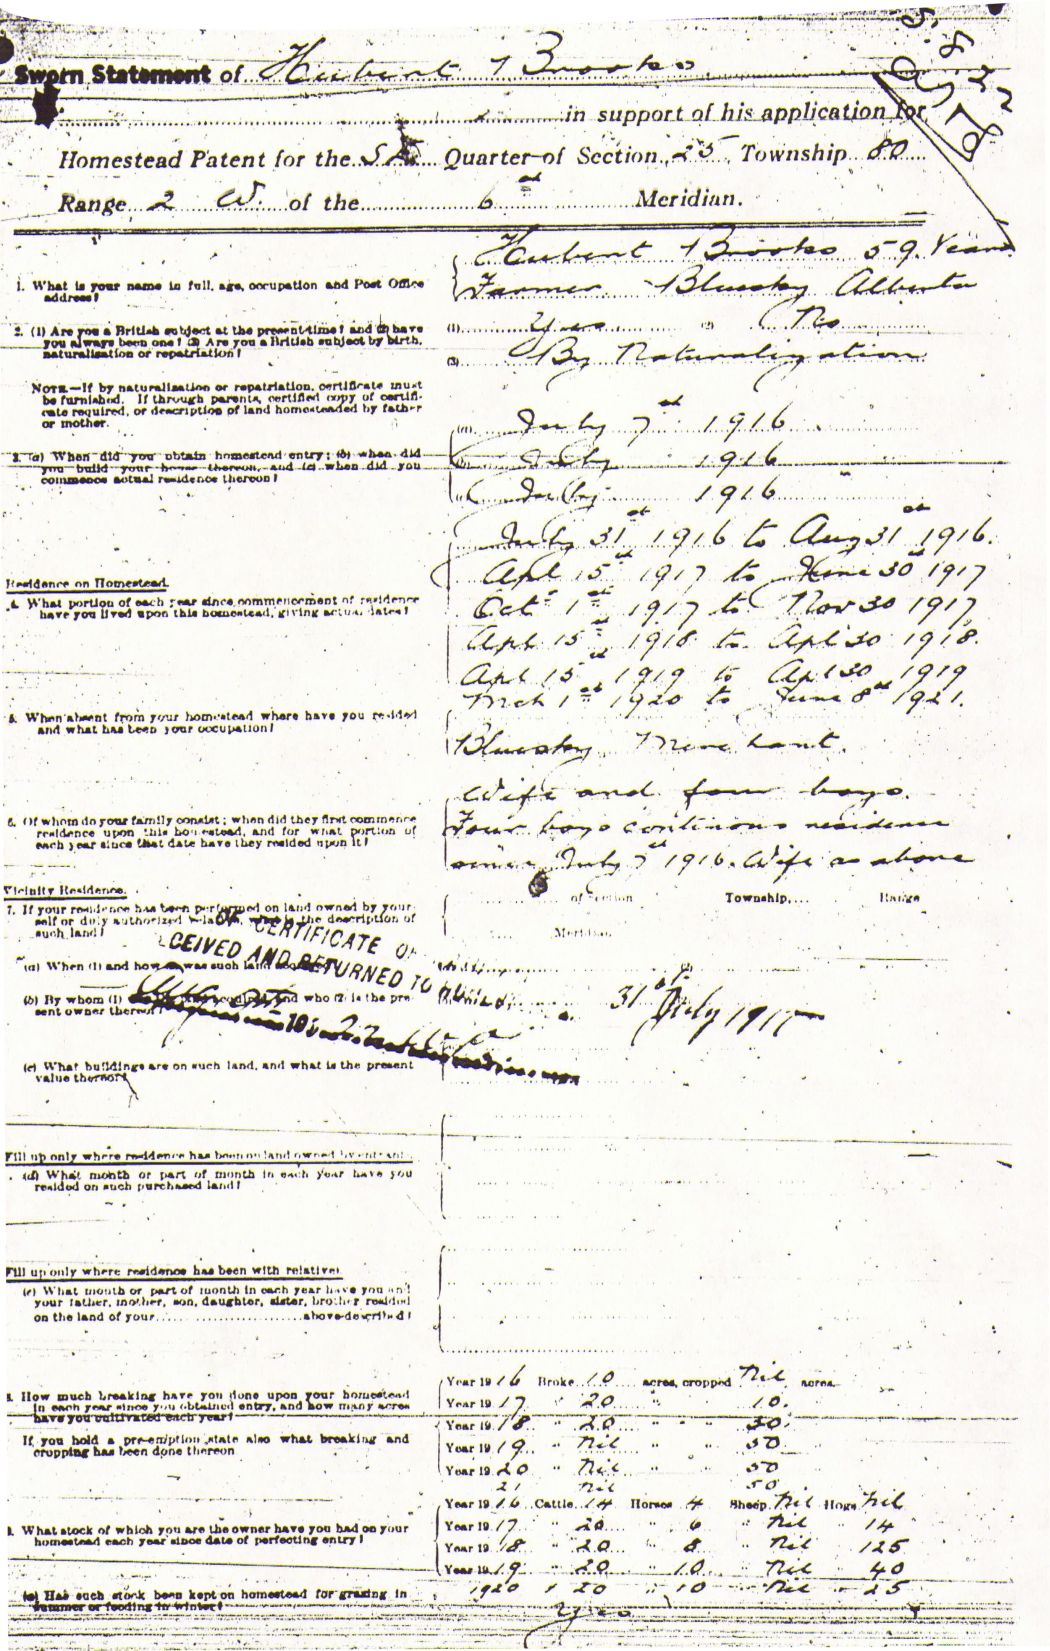 Sworn Statement of Hubert Brooks
in support of his application for
Homestead Patent for the S.E. Quarter of Section 25, Township 80
Range 2 W. of the 6th Meridian.
1. What is your name in full, age, occupation and Post Office
address?
Hubert Brooks 59 Years
Farmer Bluesky Alberta
2. (1) Are you a British subject at the present time? and (2) have
you always been one? (3) Are you a British subject by birth,
naturalization or repatriation?
(1) Yes (2) No
(3) By Naturalization
NOTE.—If by naturalisation or repatriation, certificate must
be furnished. If through parents, certified copy of certifi-
cate required, or description of land homesteaded by father
or mother.
3. (a) When did you obtain homestead entry; (b) when did
you build your house thereon, and (c) when did you
commence actual residence thereon?
(a) July 7th 1916
(b) July 1916
(c) July 1916
Residence on Homestead.
4. What portion of each year since commencement of residence
have you lived upon this homestead, giving actual dates?
July 31st 1916 to Aug 31st 1916.
Apl 15th 1917 to June 30th 1917
Oct 1st 1917 to Nov 30 1917
Apl 15th 1918 to Apl 30 1918.
Apl 15th 1919 to Apl 30 1919
Mch 1st 1920 to June 8th 1921.
5. When absent from your homestead where have you resided
and what has been your occupation?
Bluesky Merchant.
6. Of whom do your family consist; when did they first commence
residence upon this homestead, and for what portion of
each year since that date have they resided upon it?
Wife and four boys.
Four boys continous residence
since July 7th 1916. Wife as above
Vicinity Residence.
7. If your residence has been performed on land owned by your-
self or duly authorized relative, what is the description of
such land?
of Section Township.... Range
Meridian
(a) When (1) and how was such land
OF CERTIFICATE OF
CEIVED AND RETURNED TO
(b) By whom (1) and who (2) is the pre-
sent owner thereof?
31st July 1917
(c) What buildings are on such land, and what is the present
value thereof?
Fill up only where residence has been on land owned by entrant.
(d) What month or part of month in each year have you
resided on such purchased land?
Fill up only where residence has been with relative.
(e) What month or part of month in each year have you and
your father, mother, son, daughter, sister, brother resided
on the land of your above-described?
8. How much breaking have you done upon your homestead
in each year since you obtained entry, and how many acres
have you cultivated each year?
If you hold a pre-emption state also what breaking and
cropping has been done thereon
Year 1916 Broke 10 acres, cropped Nil acres.
Year 1917 " 20 " " 10.
Year 1918 " 20 " " 30
Year 1919 " Nil " " 50
Year 1920 " Nil " " 50
21 Nil 50
9. What stock of which you are the owner have you had on your
homestead each year since date of perfecting entry?
Year 1916 Cattle 14 Horses 4 Sheep Nil Hogs Nil
Year 1917 " 20 " 6 " Nil " 14
Year 1918 " 20 " 8 " Nil " 125
Year 1919 " 20 " 10 " Nil " 40
1920 " 20 " 10 " Nil " 25
(a) Has such stock been kept on homestead for grazing in
summer or feeding in winter?
Yes